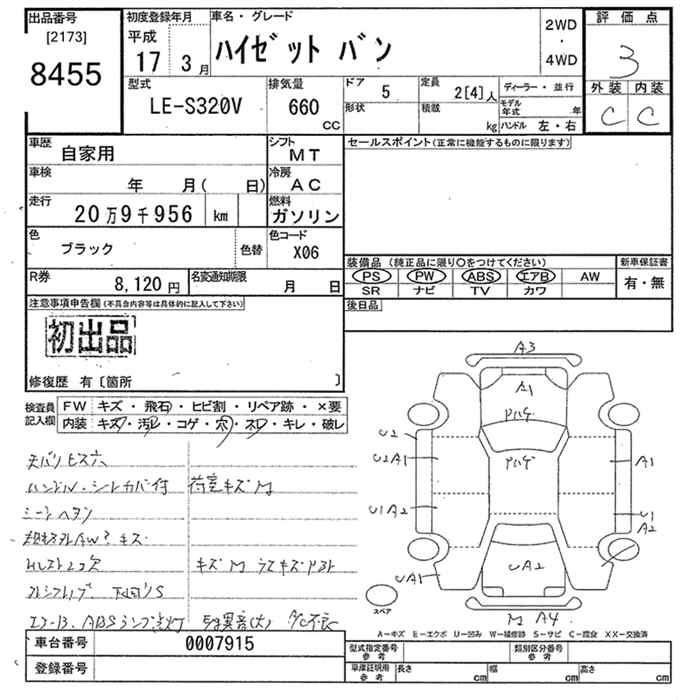 出品番号
[2173]
8455
初度登録年月
平成
17 3 月
車名・グレード
ハイゼット バン
2WD
・
4WD
評価点
3
外装 内装
C C
型式
LE-S320V
排気量
660
CC
ドア
5
定員
2[4]人
形状
積載
kg
ディーラー・並行
モデル年式 年
ハンドル 左・右
車歴
自家用
シフト
MT
車検
年 月( 日)
冷房
AC
走行
20万9千956 km
燃料
ガソリン
色
ブラック
色替
色コード
X06
R券
8,120 円
名変通知期限
月 日
セールスポイント(正常に機能するものに限ります)
装備品 (純正品に限り〇をつけてください)
PS PW ABS エアB AW
SR ナビ TV カワ
新車保証書
有・無
後日品
注意事項申告欄(不具合内容等は具体的に記入して下さい)
初出品
修復歴 有〔箇所 〕
検査員
記入欄
FW キズ・飛石・ヒビ割・リペア跡・×要
内装 キズ・汚レ・コゲ・穴・スレ・キレ・破レ
天バリ ビス穴
ハンドル・シートカバー付
荷室キズM
キズM
エアーB、ABSランプ点灯
A3
A1
U2
U2 A1
A1
U1 A2
U1
A2
UA1
UA2
M A4
スペア
A−キズ E−エクボ U−凹み W−補修跡 S−サビ C−腐食 XX−交換済
車台番号
0007915
登録番号
型式指定番号
参考
類別区分番号
参考
車庫証明用
参考
長さ cm
幅 cm
高さ cm